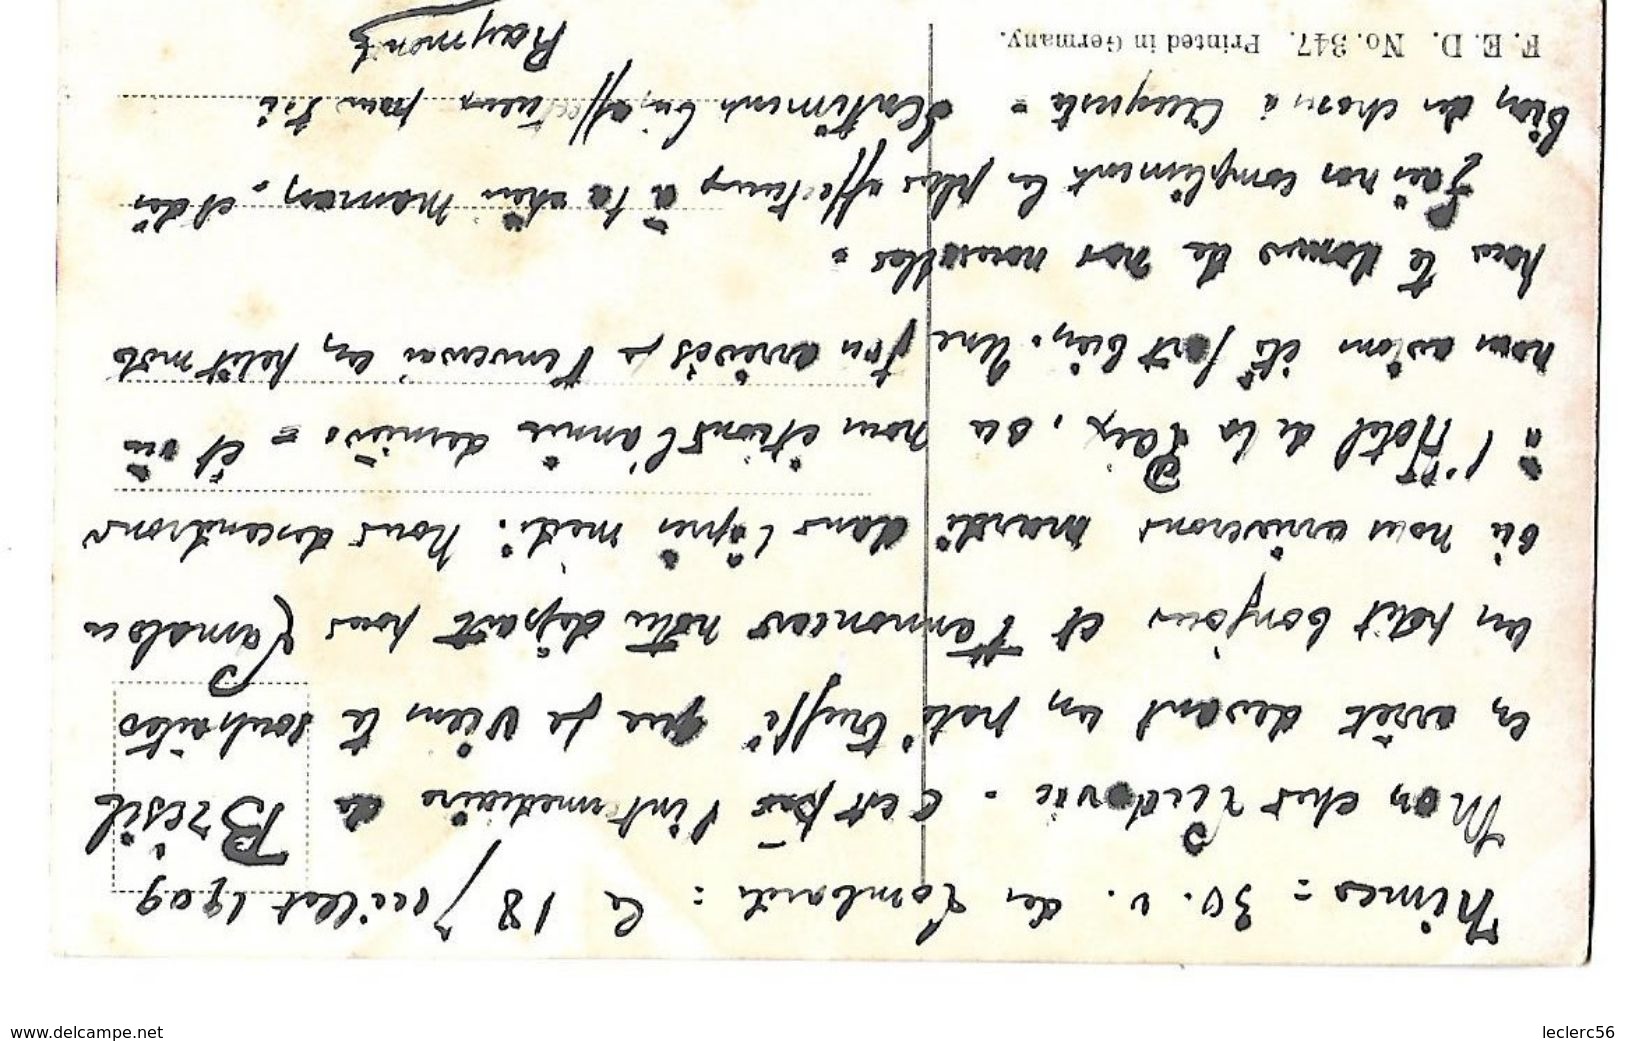 Nimes = 30. r. des Lombards = le 18 Juillet 1909
Mon cher Ludovic. C'est par l'intermediaire de Brésil
en arrêt devant un paté truffé que je viens te souhaiter
un petit bonjour et t'annoncer notre départ pour Lamalou
où nous arriverons mardi dans l'après midi. Nous descendrons
à l'Hotel de la Paix, où nous étions l'année dernière = et où
nous avions été fort bien. Une fois arrivés je t'enverrai un petit mot
pour te donner de nos nouvelles =
Fais nos compliments les plus affectueux à ta chère Maman, et dis
bien des choses à Auguste = Sentiments bien affectueux pour toi
Raymond
F. E. D. No. 347. Printed in Germany.
www.delcampe.net
leclerc56